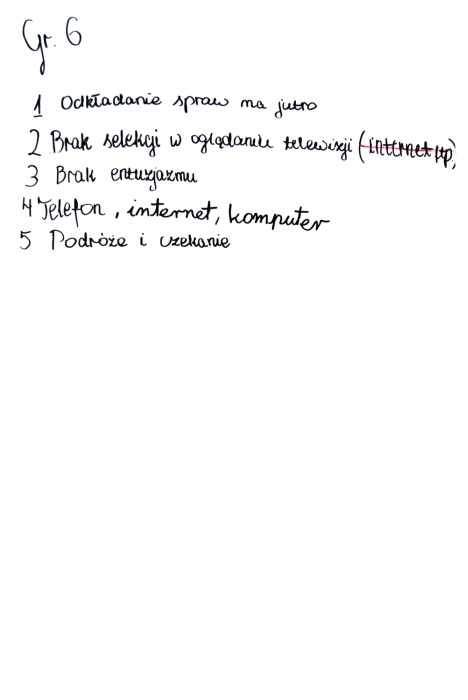 Gr. 6
1 Odkładanie spraw na jutro
2 Brak selekcji w oglądaniu telewizji (internet itp)
3 Brak entuzjazmu
4 Telefon, internet, komputer
5 Podróże i czekanie